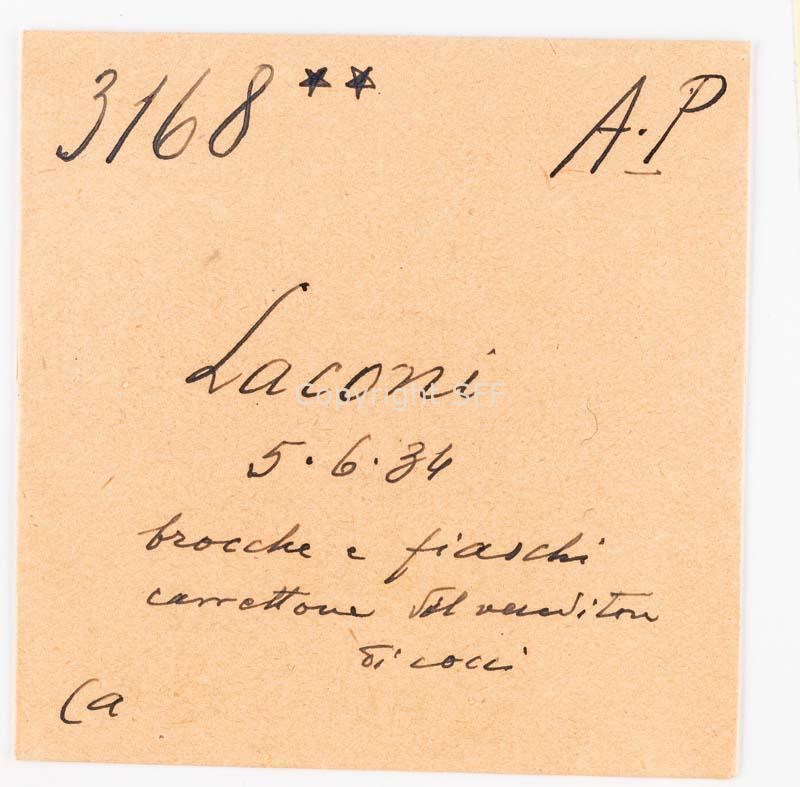 3168 ** A.P
Laconi
Copyright SFF
5.6.34
brocche e fiaschi
carrettone del venditore
di cocci
Ca